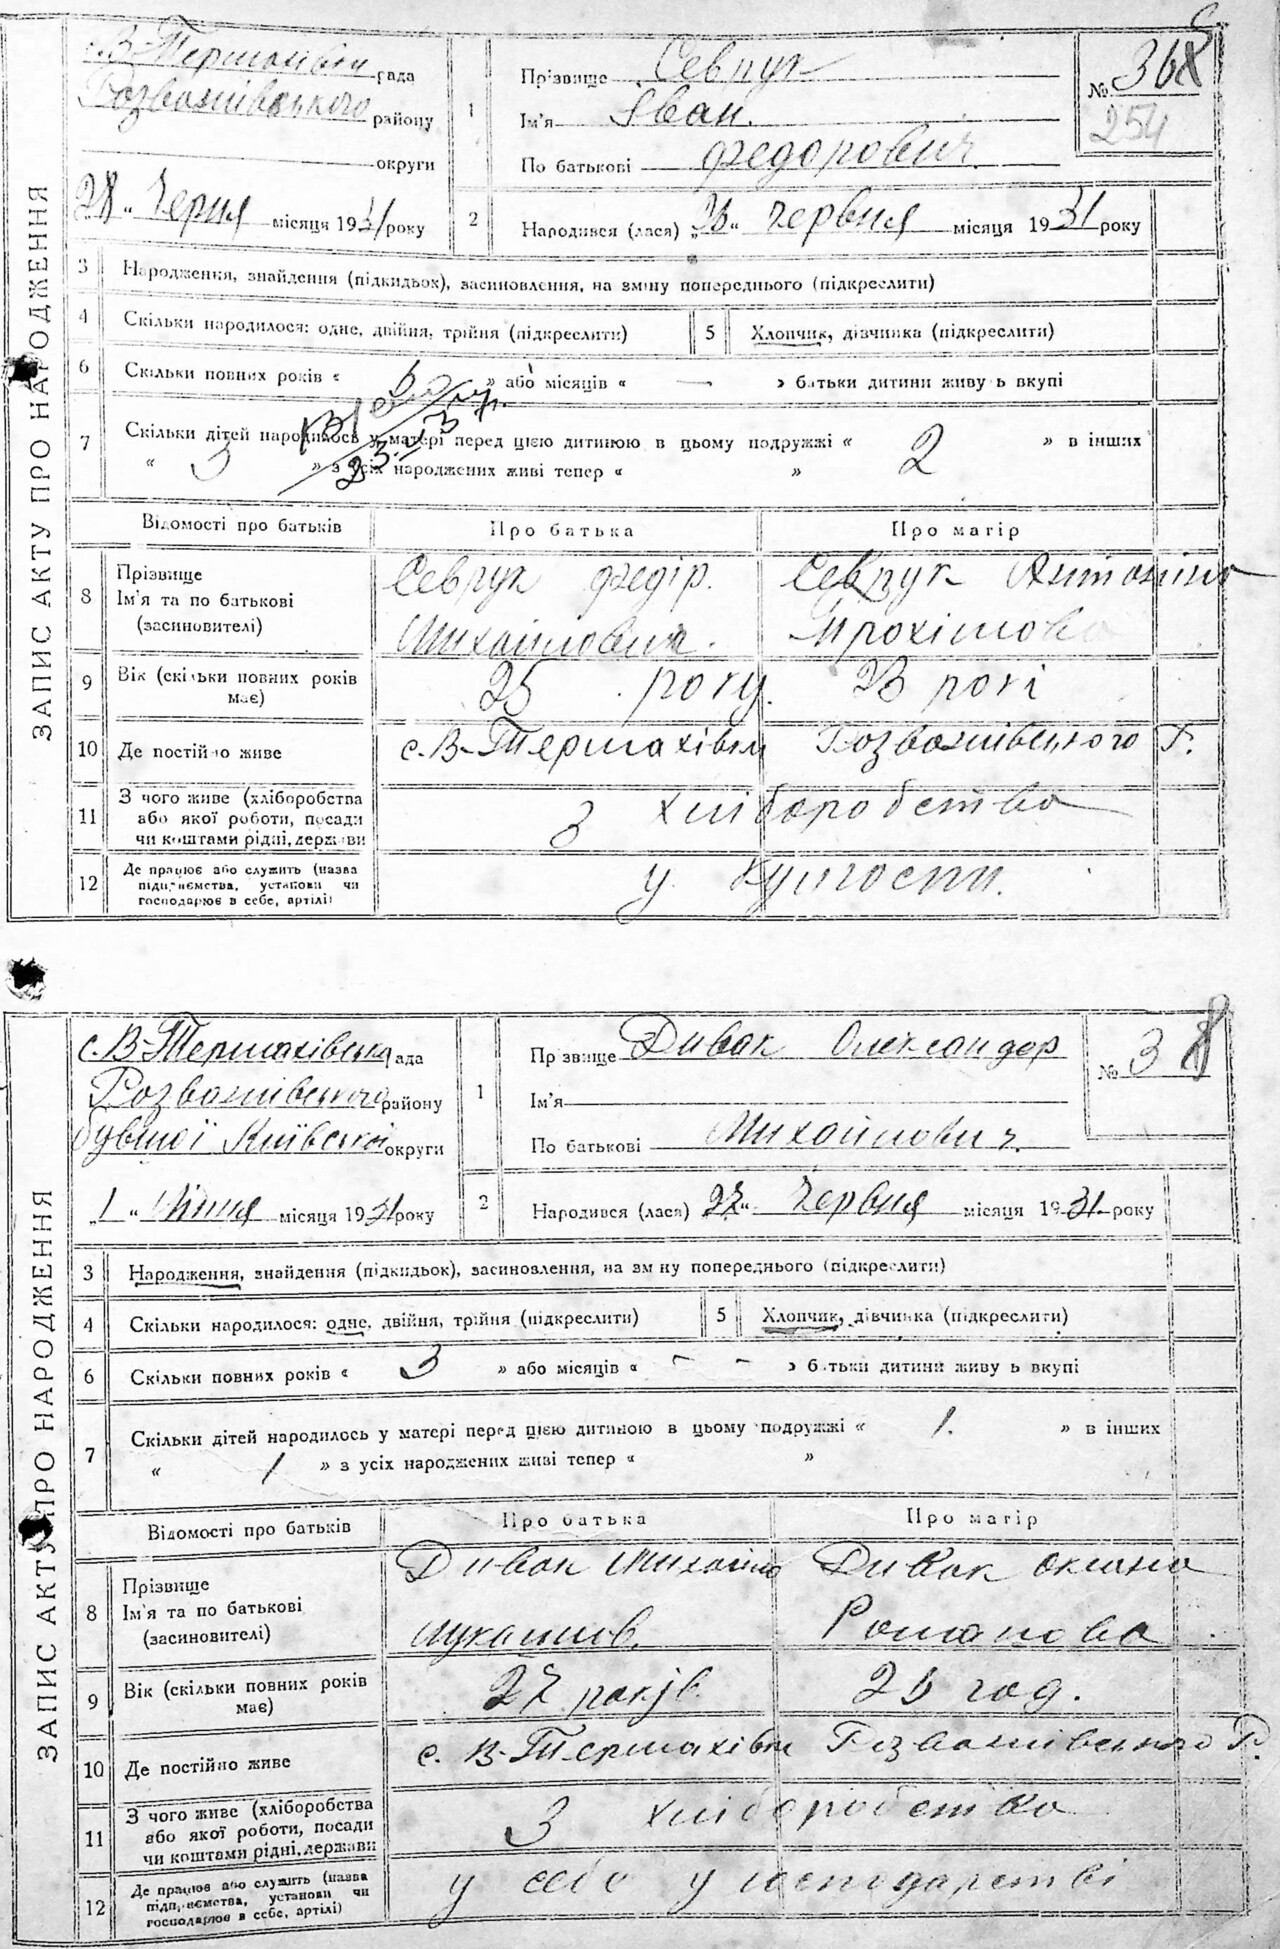 ЗАПИС АКТУ ПРО НАРОДЖЕННЯ
с. В-Термахівськ рада
Розважівського району
округи
28 " Черня місяця 1931 року
1 Прізвище Севрук
Ім'я Іван.
По батькові Федорович.
№ 36
254
2 Народився (лася) " " червня місяця 1931 року
3 Народження, знайдення (підкидьок), засиновлення, на зміну попереднього (підкреслити)
4 Скільки народилося: одне, двійня, трійня (підкреслити)
5 Хлопчик, дівчинка (підкреслити)
6 Скільки повних років « 6 » або місяців « — » батьки дитини живуть вкупі
7 Скільки дітей народилось у матері перед цією дитиною в цьому подружжі « 2 » в інших
« 3 » з усіх народжених живі тепер « »
Відомості про батьків Про батька Про матір
8 Прізвище
Ім'я та по батькові
(засиновителі)
Севрук Федір.
Михайлович.
Севрук Антоніна
Трохімова
9 Вік (скільки повних років має)
25 року. 23 рокі
10 Де постійно живе
с. В-Термахівк Розважівського Р.
11 З чого живе (хліборобства
або якої роботи, посади
чи коштами рідні, держави
З хліборобства
12 Де працює або служить (назва
підприємства, установи чи
господарює в себе, артілі)
у
ЗАПИС АКТУ ПРО НАРОДЖЕННЯ
с. В-Термахівська рада
Розважівського району
бувшої Київської округи
„1 " Липня місяця 1931 року
1 Прізвище Дивак Олександер
Ім'я
По батькові Михайлович.
№ 38
2 Народився (лася) 27 " Червня місяця 1931 року
3 Народження, знайдення (підкидьок), засиновлення, на зміну попереднього (підкреслити)
4 Скільки народилося: одне, двійня, трійня (підкреслити)
5 Хлопчик, дівчинка (підкреслити)
6 Скільки повних років « 3 » або місяців « - - » батьки дитини живуть вкупі
7 Скільки дітей народилось у матері перед цією дитиною в цьому подружжі « 1. » в інших
« 1 » з усіх народжених живі тепер « »
Відомості про батьків Про батька Про матір
8 Прізвище
Ім'я та по батькові
(засиновителі)
Дивак Михайло
Лукашов.
Дивак Оксана
Романова
9 Вік (скільки повних років має)
27 років. 25 год.
10 Де постійно живе
с. В-Термахівк Розважівського Р.
11 З чого живе (хліборобства
або якої роботи, посади
чи коштами рідні, держави
З хліборобства
12 Де працює або служить (назва
підприємства, установи чи
господарює в себе, артілі)
у себе у господарстві